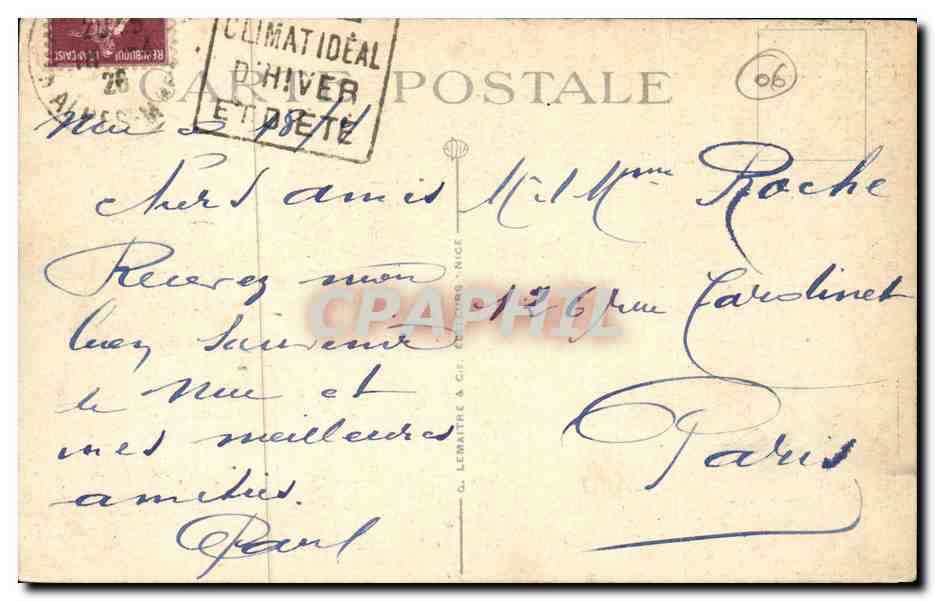 CLIMAT IDÉAL
D'HIVER
ET D'ÉTÉ
26
ALPES-M
CARTE POSTALE
06
Nice
Chers amis
Recevez mon
bon Souvenir
de Nice et
mes meilleures
amitiés.
Paul
G. LEMAITRE & CIE NICE
M. et Mme Roche
126 rue Cardinet
Paris
CPAPHIL